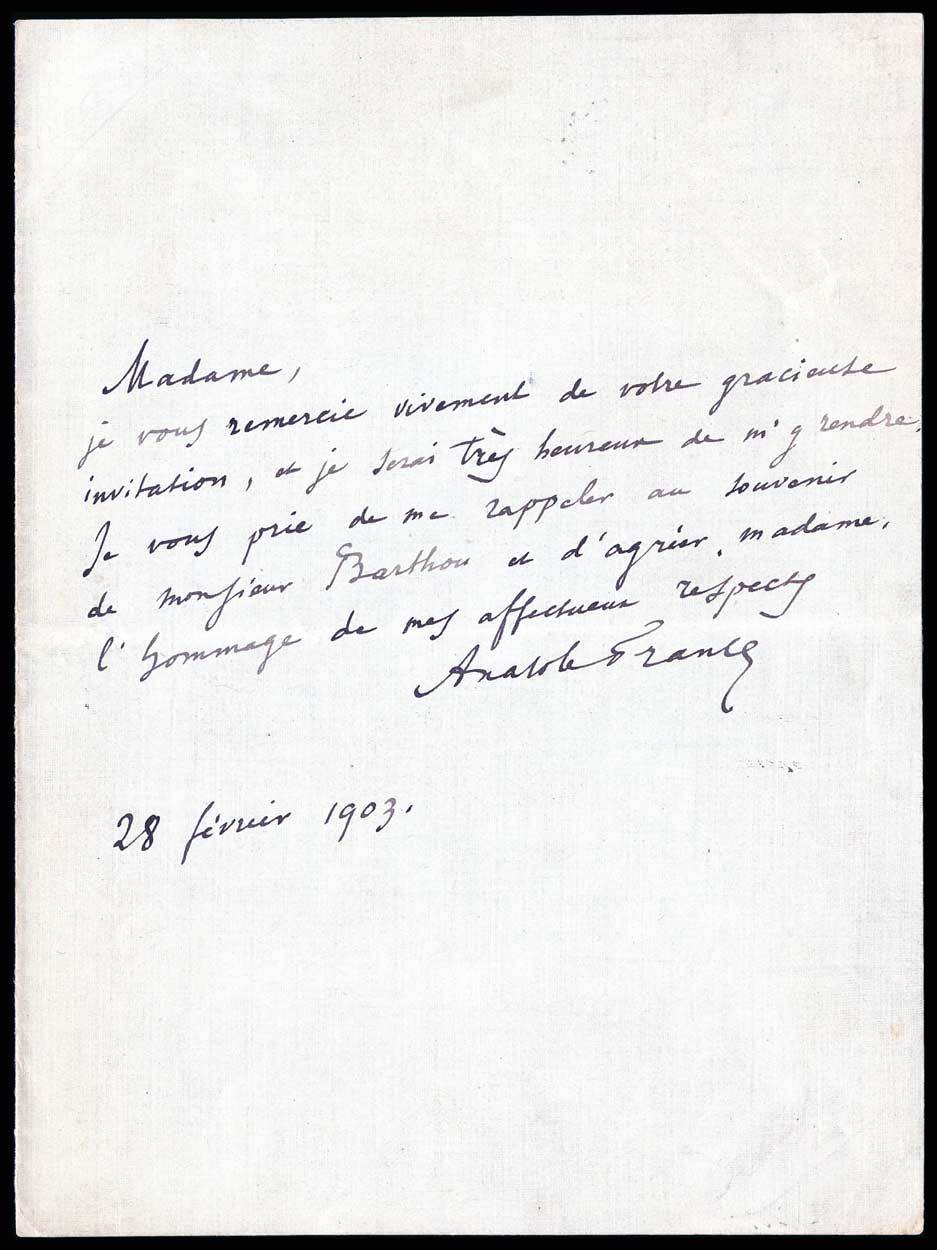 Madame,
je vous remercie vivement de votre gracieuse
invitation, et je serai très heureux de m'y rendre.
Je vous prie de me rappeler au souvenir
de monsieur Barthou et d'agréer, madame,
l'hommage de mes affectueux respects
Anatole France
28 février 1903.